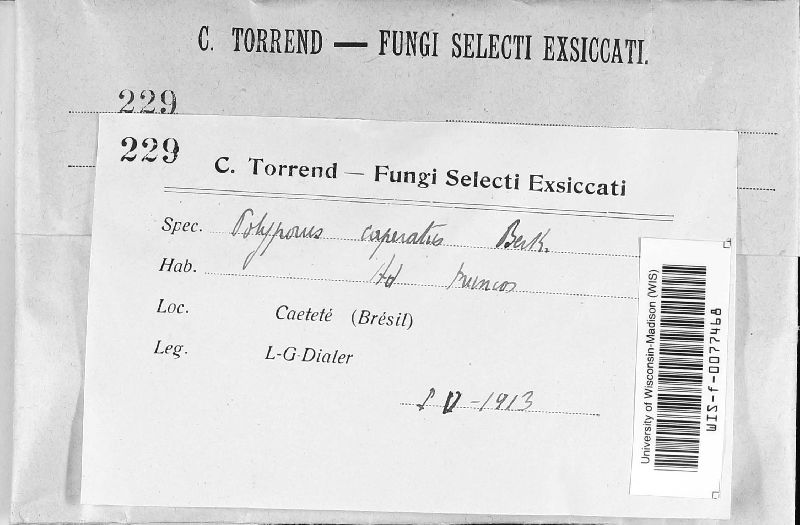 C. TORREND — FUNGI SELECTI EXSICCATI.
229
229
C. Torrend — Fungi Selecti Exsiccati
Spec. Polyporus caperatus Berk.
Hab. Ad truncos
Loc. Caeteté (Brésil)
Leg. L-G-Dialer
V -1913
University of Wisconsin-Madison (WIS)
WIS-f-0077468